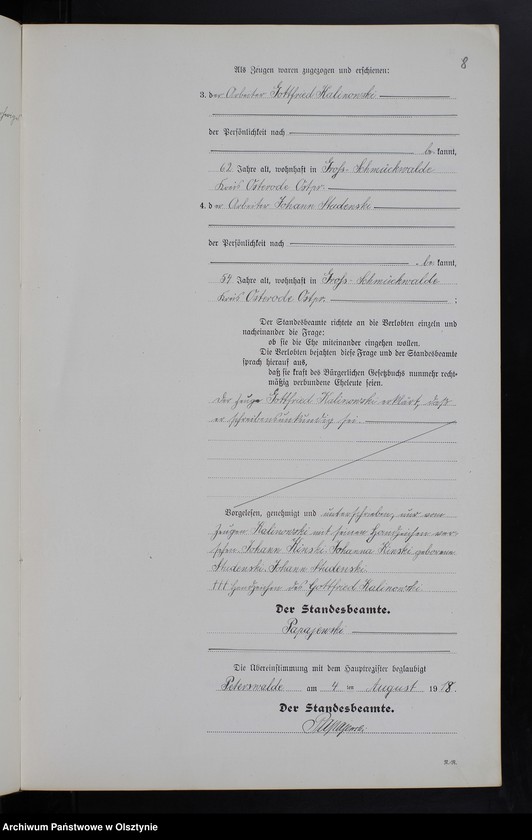 8
Als Zeugen waren zugezogen und erschienen:
3. der Arbeiter Gottfried Kalinowski
der Persönlichkeit nach
be kannt,
62 Jahre alt, wohnhaft in Groß-Schmückwalde
Kreis Osterode Ostpr.
4. der Arbeiter Johann Studenski
der Persönlichkeit nach
be kannt,
59 Jahre alt, wohnhaft in Groß-Schmückwalde
Kreis Osterode Ostpr. ;
Der Standesbeamte richtete an die Verlobten einzeln und
nacheinander die Frage:
ob sie die Ehe miteinander eingehen wollen.
Die Verlobten bejahten diese Frage und der Standesbeamte
sprach hierauf aus,
daß sie kraft des Bürgerlichen Gesetzbuchs nunmehr recht-
mäßig verbundene Eheleute seien.
Der Zeuge Gottfried Kalinowski erklärt, daß
er schreibensunkundig sei.
Vorgelesen, genehmigt und unterschrieben, nur vom
Zeugen Kalinowski mit seinem Handzeichen ver-
sehen. Johann Kinski Johanna Kinski geborene
Studenski. Johann Studenski.
††† Handzeichen des Gottfried Kalinowski.
Der Standesbeamte.
Papajewski
Die Übereinstimmung mit dem Hauptregister beglaubigt
Peterswalde am 4 ten August 1918.
Der Standesbeamte.
B.-R.
Archiwum Państwowe w Olsztynie